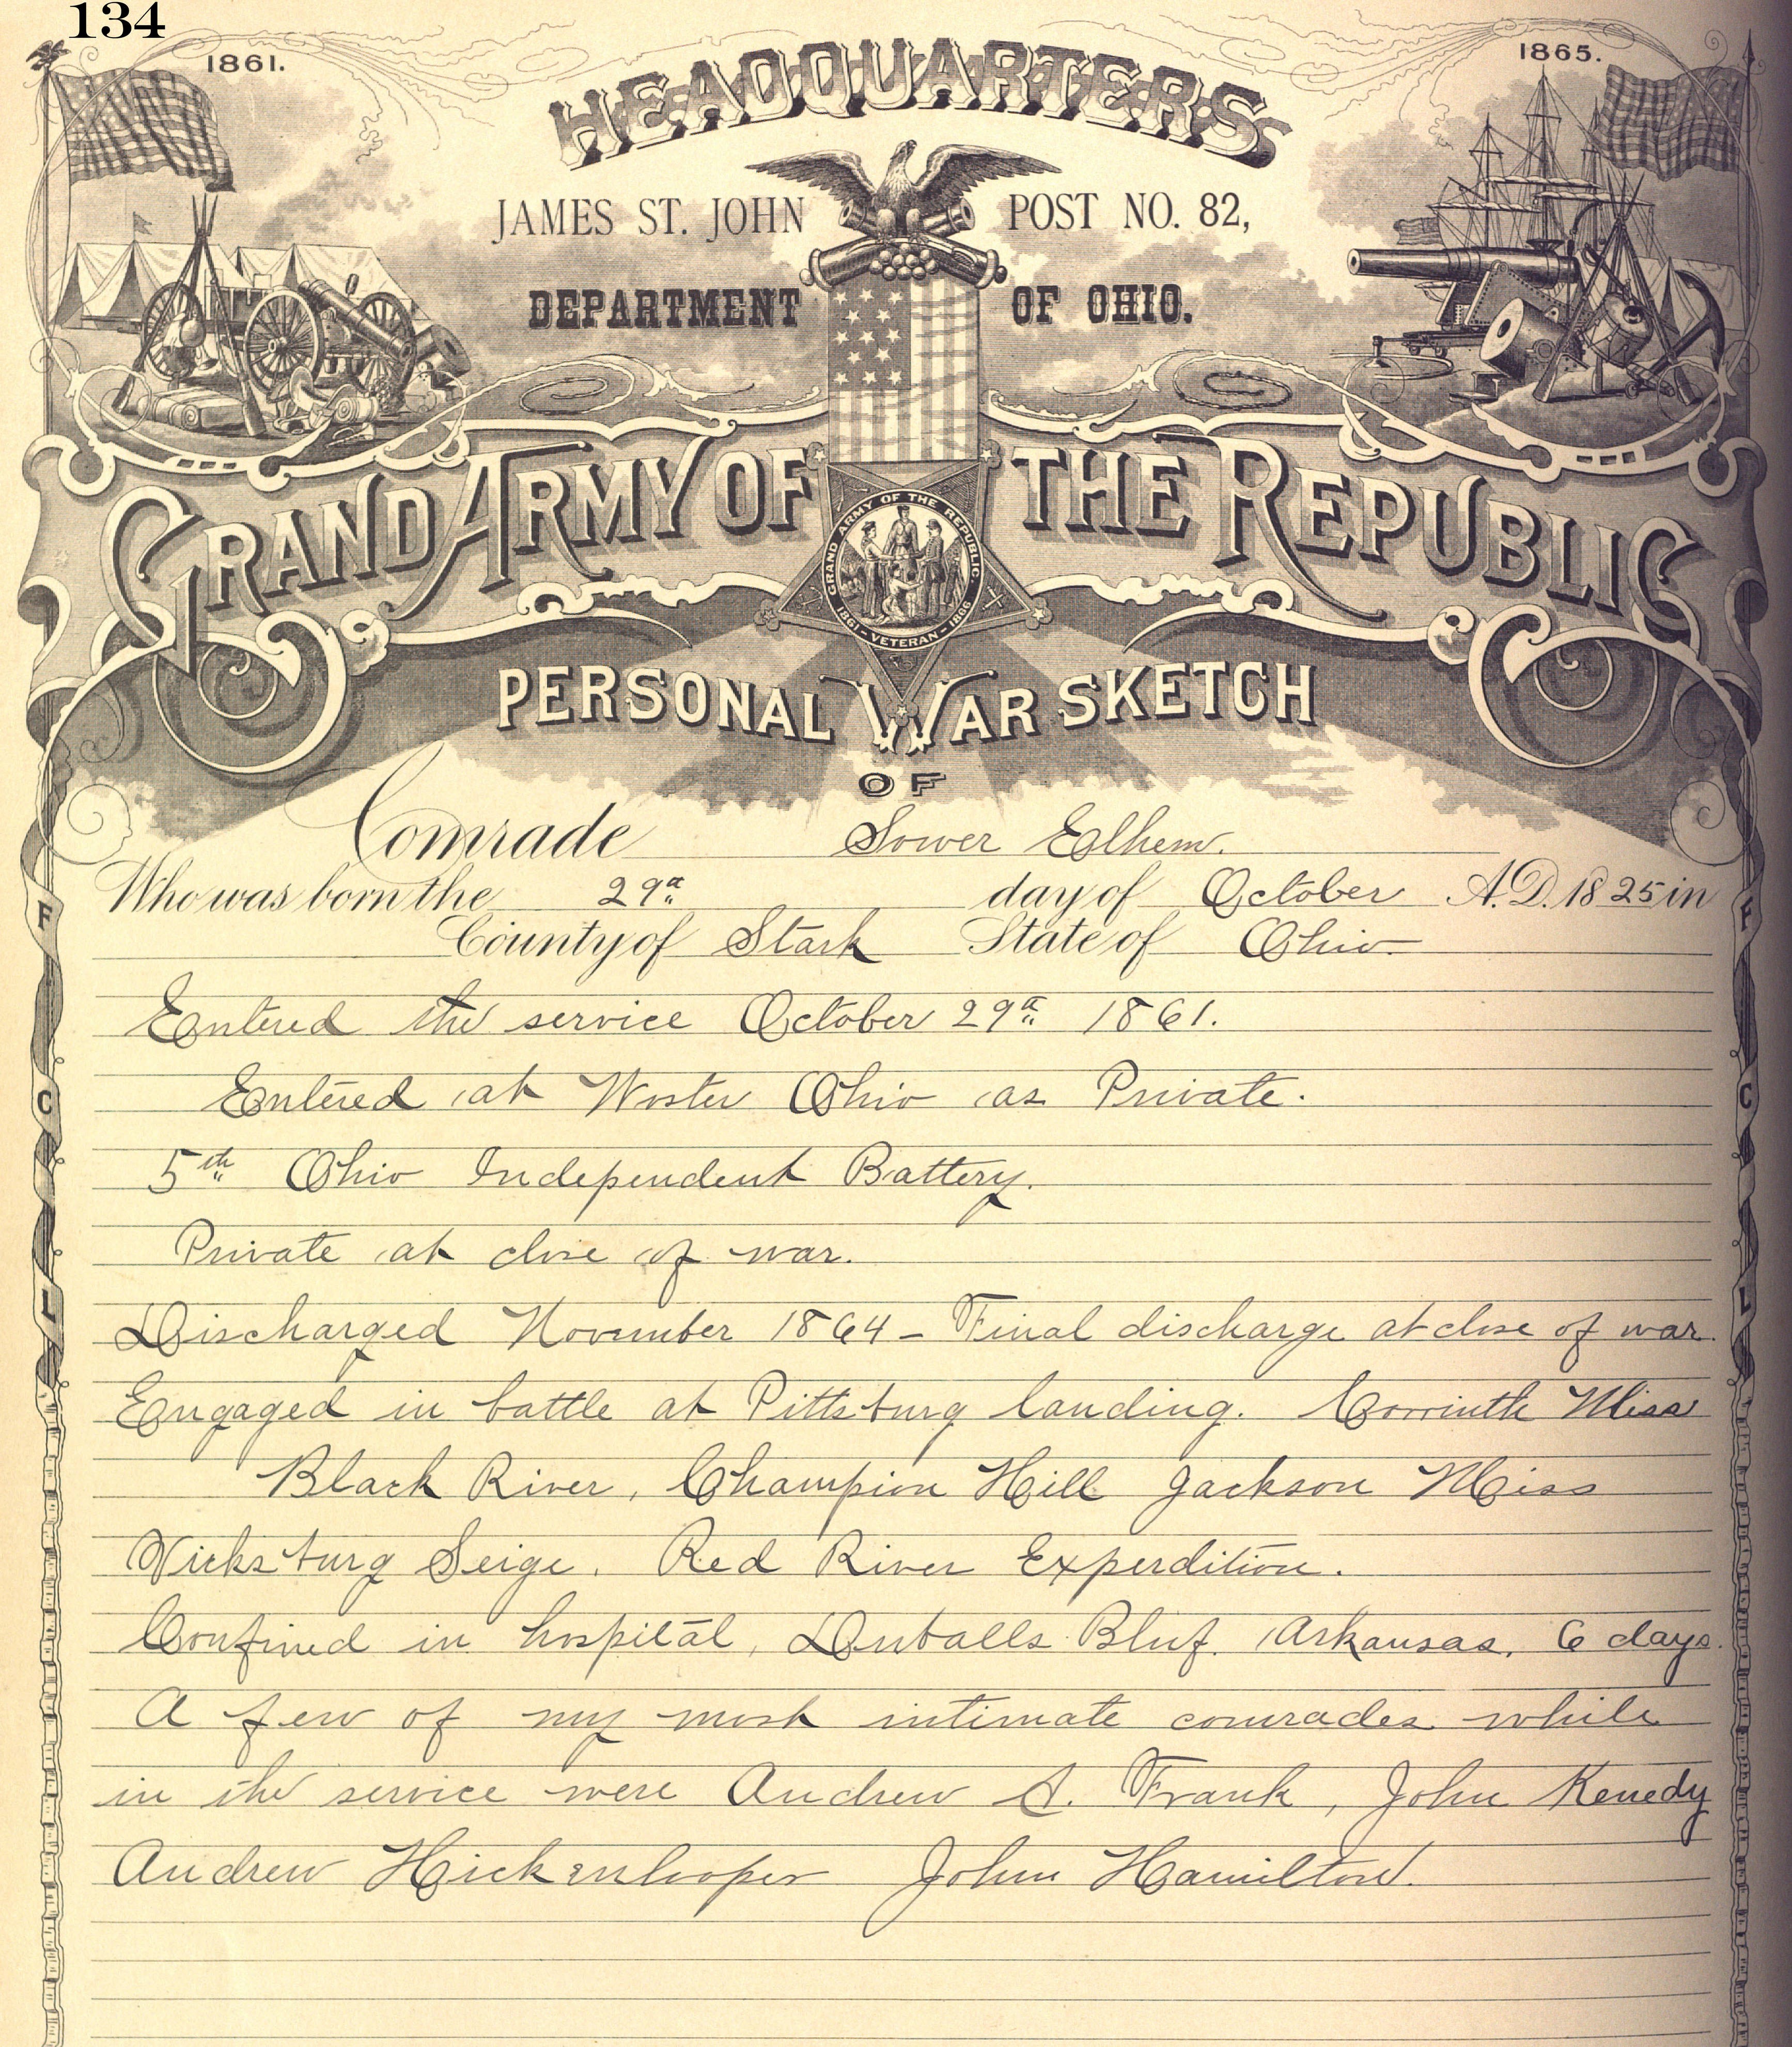 134
1861.
1865.
HEADQUARTERS
JAMES ST. JOHN POST NO. 82,
DEPARTMENT OF OHIO.
GRAND ARMY OF THE REPUBLIC
GRAND ARMY OF THE REPUBLIC
1861 - VETERAN - 1866
PERSONAL WAR SKETCH
OF
Comrade Sower Elhem.
Who was born the 29th day of October A.D. 1825 in
County of Stark State of Ohio.
F
F
Entered the service October 29th 1861.
Entered at Woster Ohio as Private.
C
C
5th Ohio Independent Battery.
Private at close of war.
L
L
Discharged November 1864 – Final discharge at close of war.
Engaged in battle at Pittsburg landing. Corrinth Miss
Black River, Champion Hill Jackson Miss
Vicksburg Seige. Red River Experdition.
Confined in hospital, Duballs Bluf. Arkansas, 6 days.
A few of my most intimate comrades while
in the service were Andrew S. Frank, John Kenedy
Andrew Hickenlooper John Hamilton.